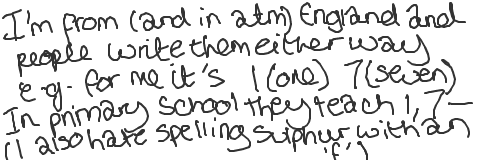 I'm from (and in atm) England and
people write them either way
e.g. for me it's 1 (one) 7 (seven)
In primary school they teach 1, 7 —
(I also hate spelling sulphur with an
'f')